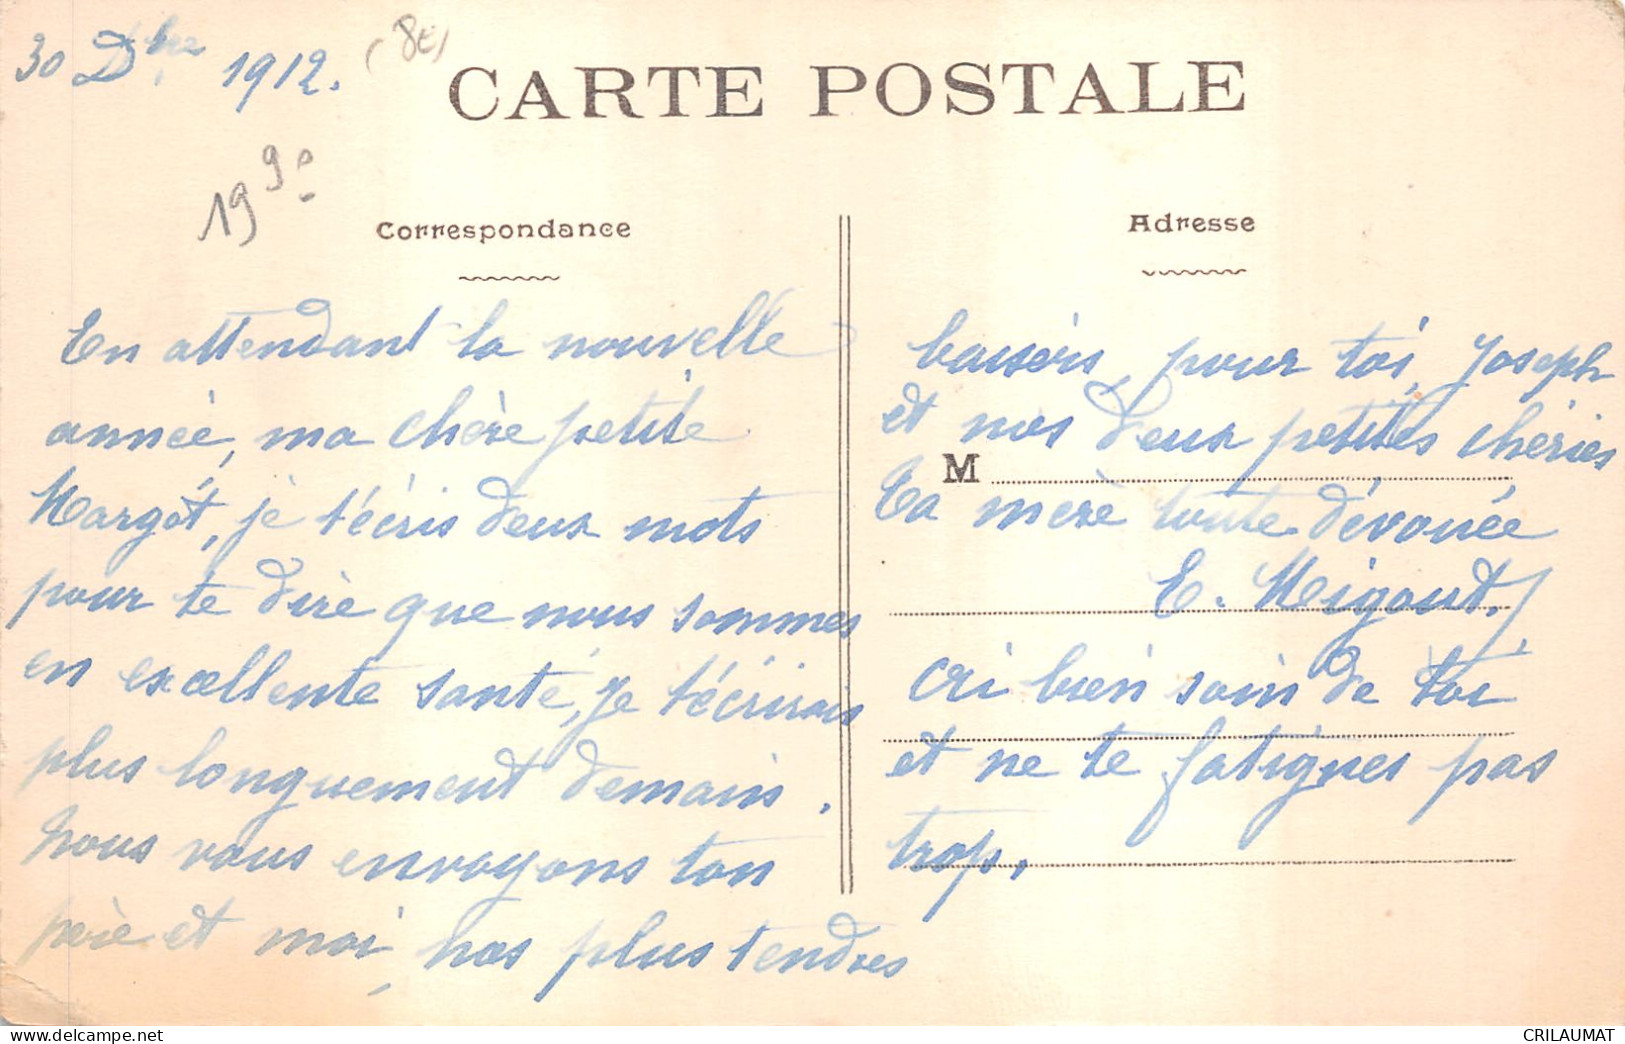 30 Dbre 1912.
(8e)
CARTE POSTALE
19 90
Correspondance
En attendant la nouvelle
année, ma chère petite
Margot, je t'écris deux mots
pour te dire que nous sommes
en excellente santé, je t'écrirais
plus longuement demain.
Nous vous envoyons ton
père et moi, nos plus tendres
Adresse
baisers, pour toi, Joseph
et nos deux petites chéries
M
Ta mère toute dévouée
E. Migout.
Ai bien soin de toi
et ne te fatigues pas
trop.
CRILAUMAT